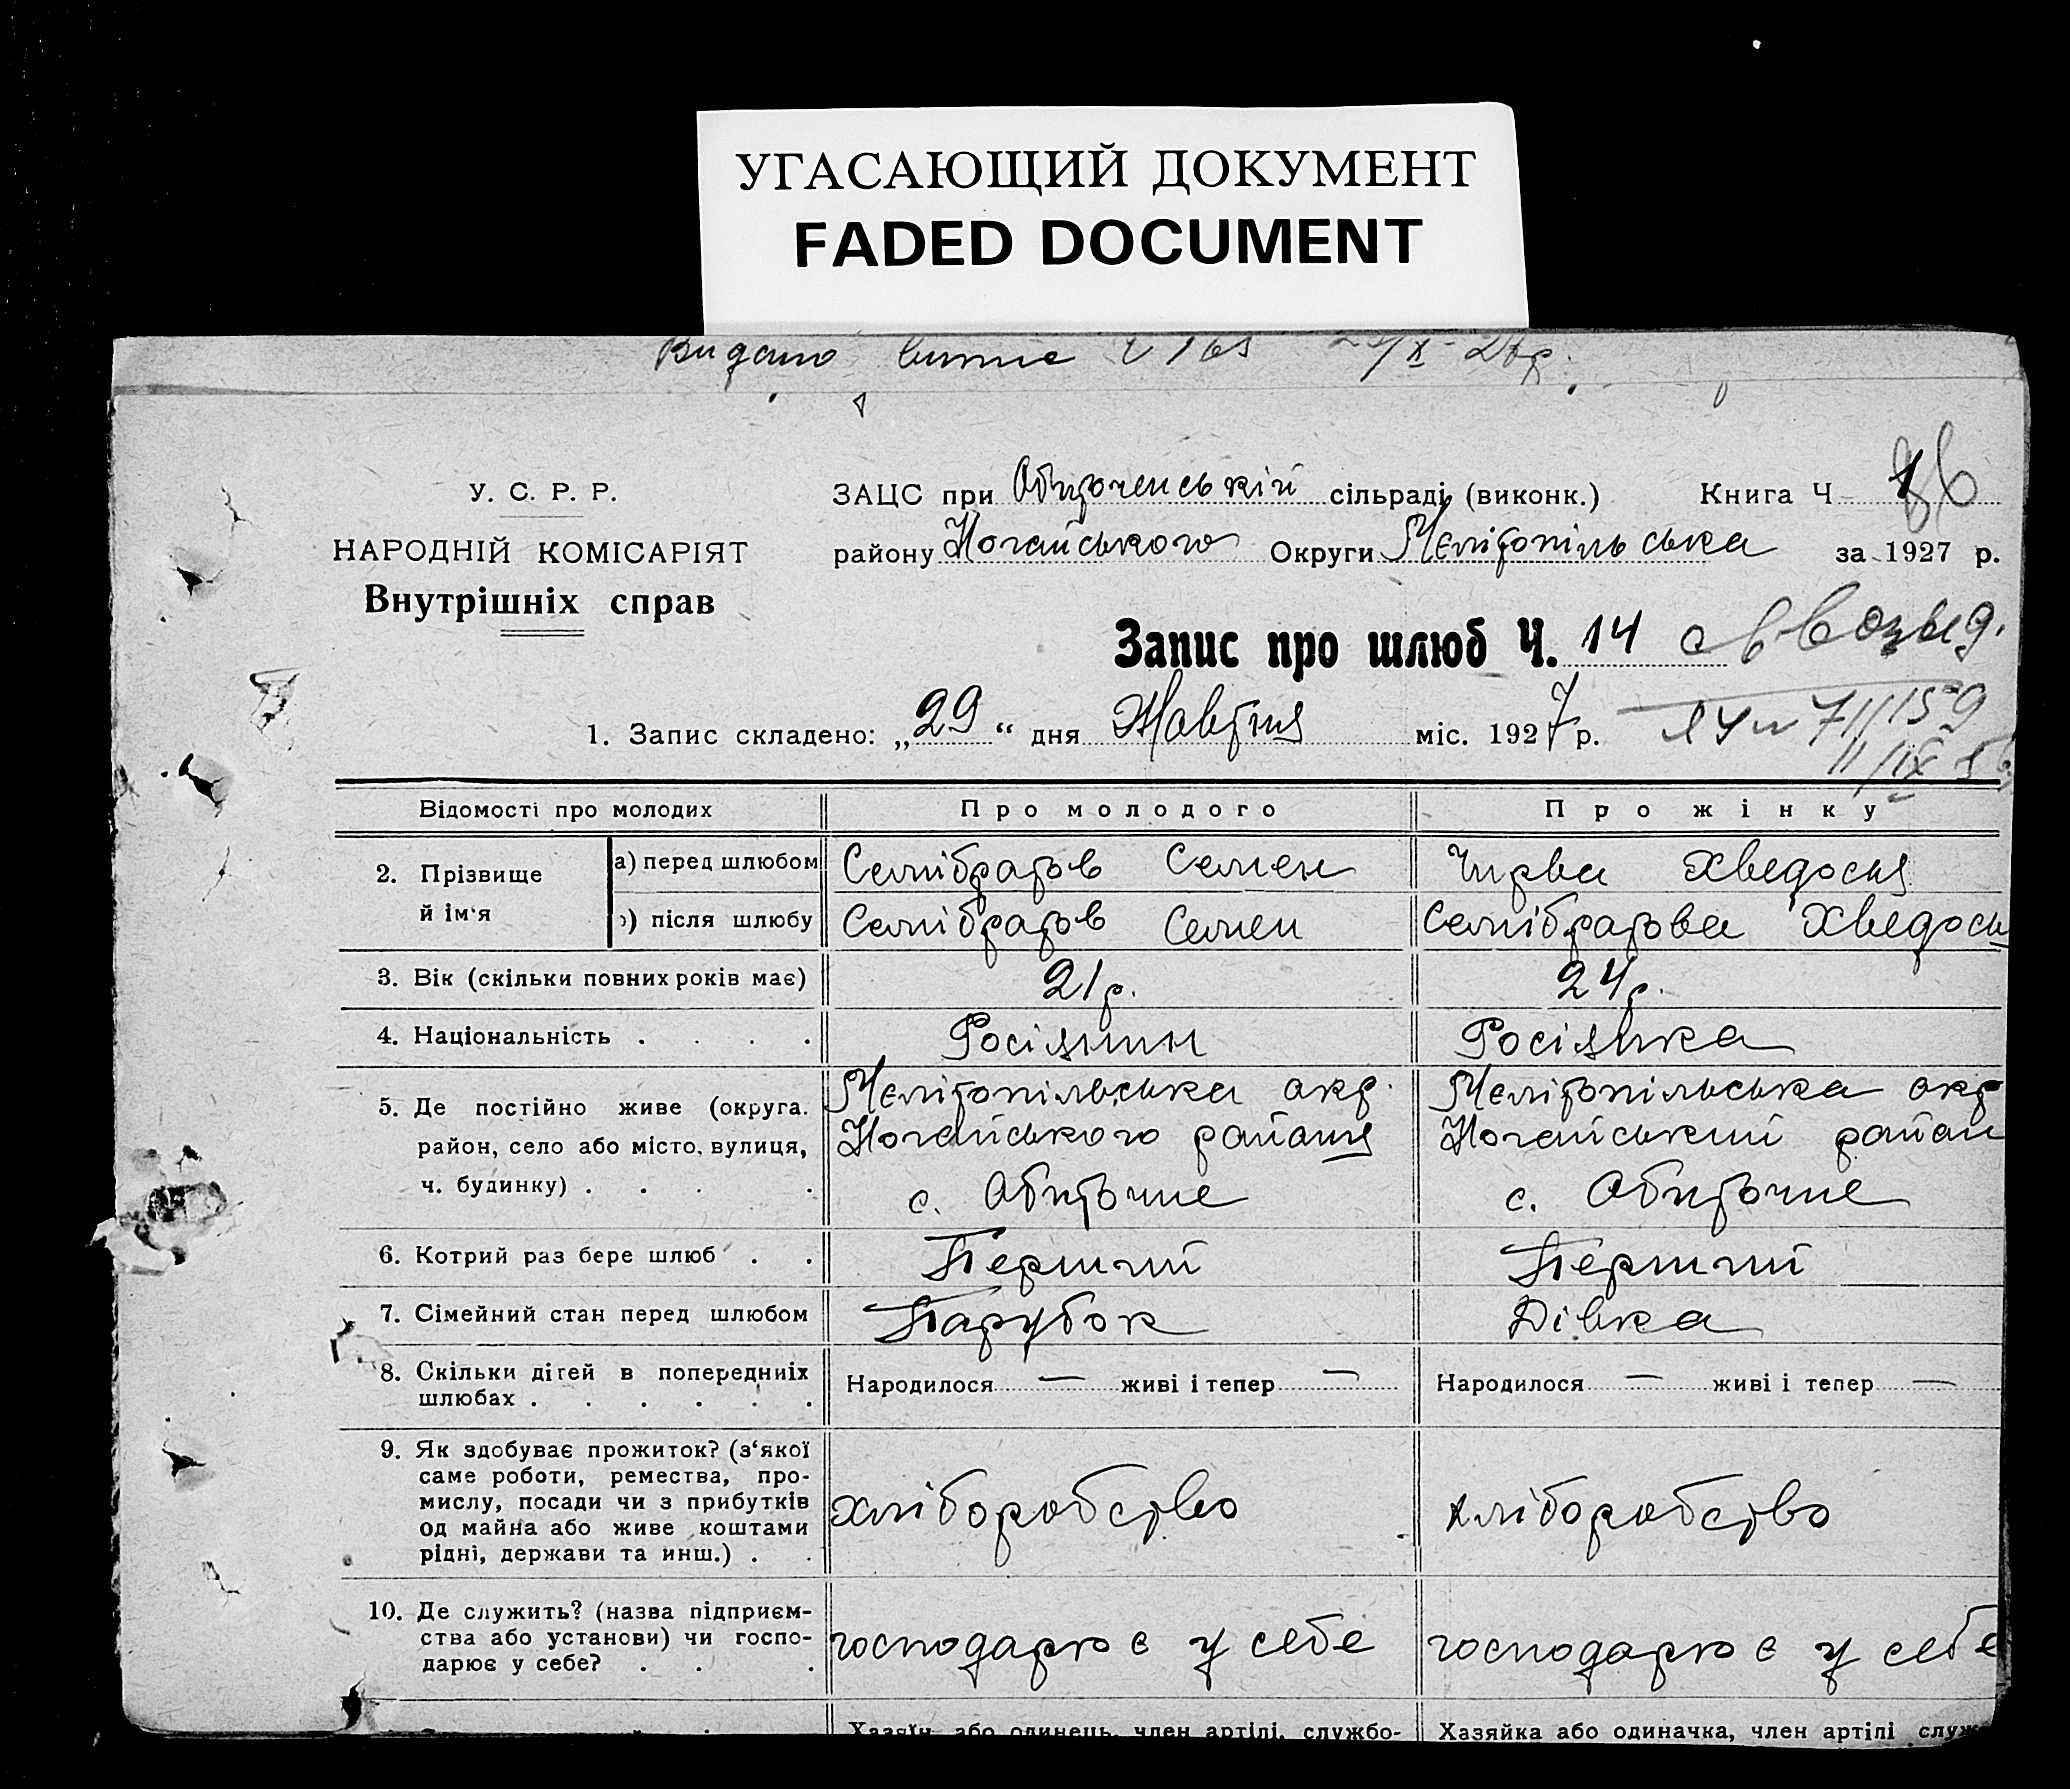 УГАСАЮЩИЙ ДОКУМЕНТ
FADED DOCUMENT
Видано
У. С. Р. Р.
НАРОДНІЙ КОМІСАРІЯТ
Внутрішніх справ
ЗАЦС при Обиточенській сільраді (виконк.) Книга Ч
району Ногайського Округи Мелітопільська за 1927 р.
Запис про шлюб Ч. 14
1. Запис складено: „29“ дня Жовтня міс. 1927 р.
Відомості про молодих Про молодого Про жінку
2. Прізвище й ім‘я
а) перед шлюбом Селібратов Семен Чирва Хведося
) після шлюбу Селібратов Семен Селібратова Хведось
3. Вік (скільки повних років має) 21 р. 24 р.
4. Національність . . . . Росіянин Росіянка
5. Де постійно живе (округа. Мелітопільська окр. Мелітопільська окр
район, село або місто, вулиця, Ногайського района Ногайський район
ч. будинку) . . . . с. Обиточне с. Обиточне
6. Котрий раз бере шлюб . . Перший Перший
7. Сімейний стан перед шлюбом Парубок Дівка
8. Скільки дітей в попередниіх
шлюбах . . . . . . Народилося — живі і тепер — Народилося — живі і тепер —
9. Як здобуває прожиток? (з‘якої
саме роботи, ремества, про-
мислу, посади чи з прибутків хліборобство хліборобство
од майна або живе коштами
рідні, держави та инш.) . .
10. Де служить? (назва підприєм-
ства або установи) чи госпо- господарює у себе господарює у себе
дарює у себе? . . .
Хазяїн або одинець, член артілі, службо- Хазяйка або одиначка, член артілі служ